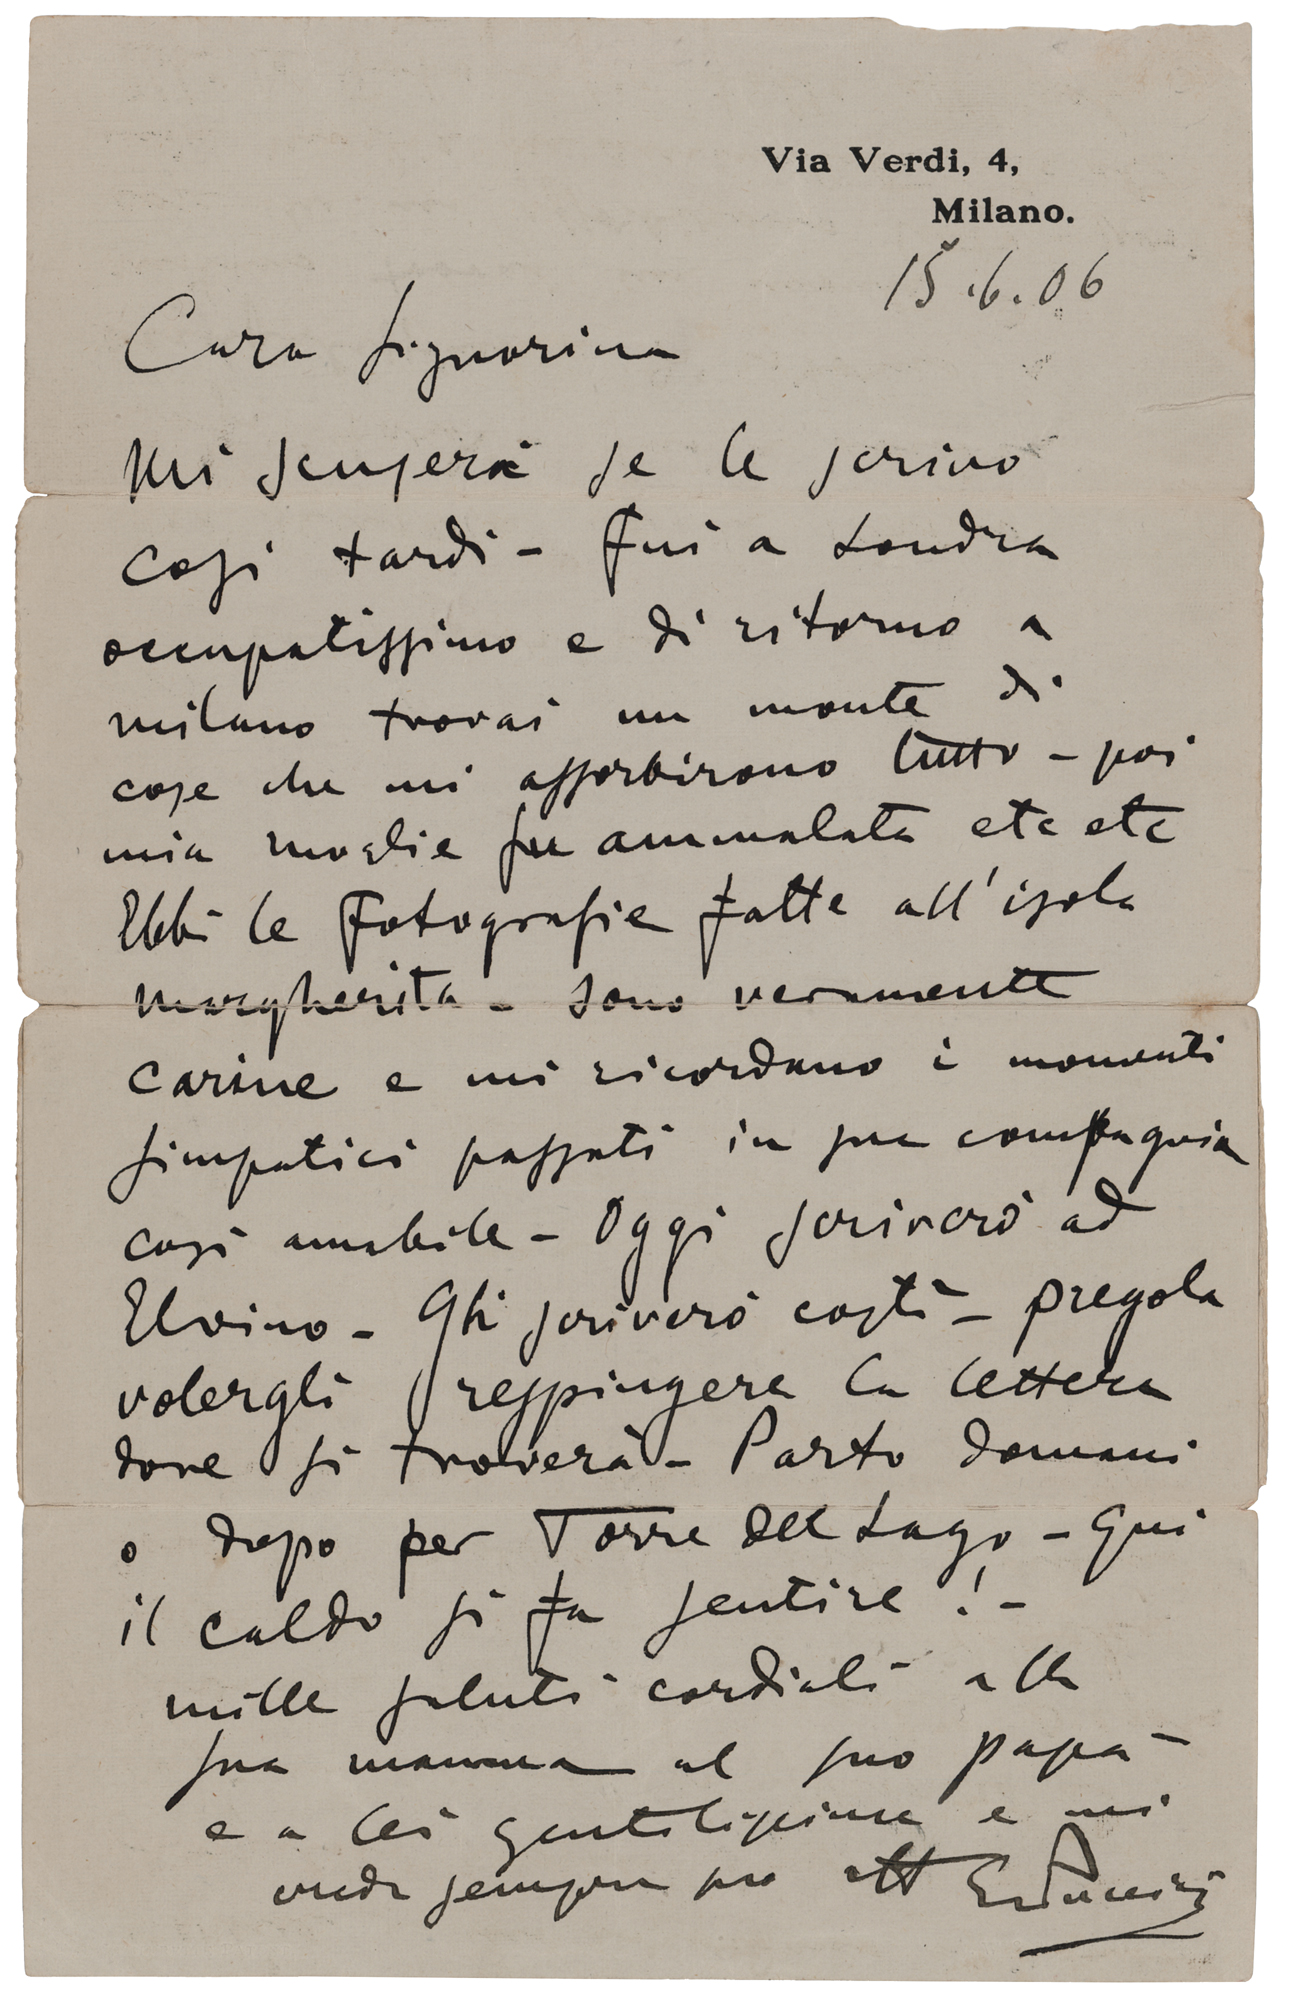 Via Verdi, 4,
Milano.
15.6.06
Cara Signorina
Mi scuserà se le scrivo
così tardi - Fui a Londra
occupatissimo e di ritorno a
milano trovai un monte di
cose che mi assorbirono tutto - poi
mia moglie fu ammalata etc etc
Ebbi le fotografie fatte all'isola
margherita - sono veramente
carine e mi ricordano i momenti
simpatici passati in sua compagnia
così amabile - Oggi scriverò ad
Elvino - Gli scriverò costì - pregola
volergli respingere la lettera
dove si troverà - Parto domani
o dopo per Torre del Lago - Qui
il caldo si fa sentire! -
mille saluti cordiali alla
sua mamma al suo papà
e a lei gentilissima e mi
creda sempre suo aff
GPuccini